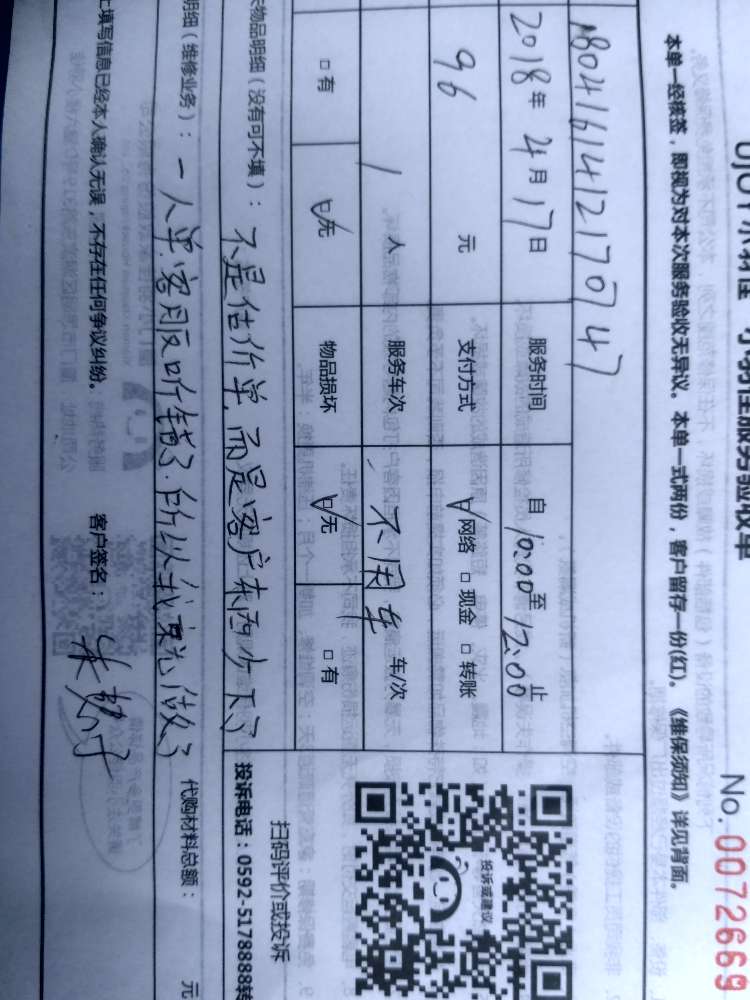 No. 0072669
本单一经核签，即视为对本次服务验收无异议。本单一式两份，客户留存一份(红)。《维保须知》详见背面。
1804161412170747
2018年4月17日 服务时间 自10:00至12:00止
96元 支付方式 ☑网络 □现金 □转账
1人 服务车次 不用车 车/次
□有 ☑无 物品损坏 ☑无 □有
投诉或建议
扫码评价或投诉
投诉电话：0592-5178888转
物品明细（没有可不填）：不是估价单，而是客户东西少不了
明细（维修业务）：一人单，客服听错了，所以我就做了
代购材料总额： 元
填写信息已经本人确认无误，不存在任何争议纠纷。 客户签名：